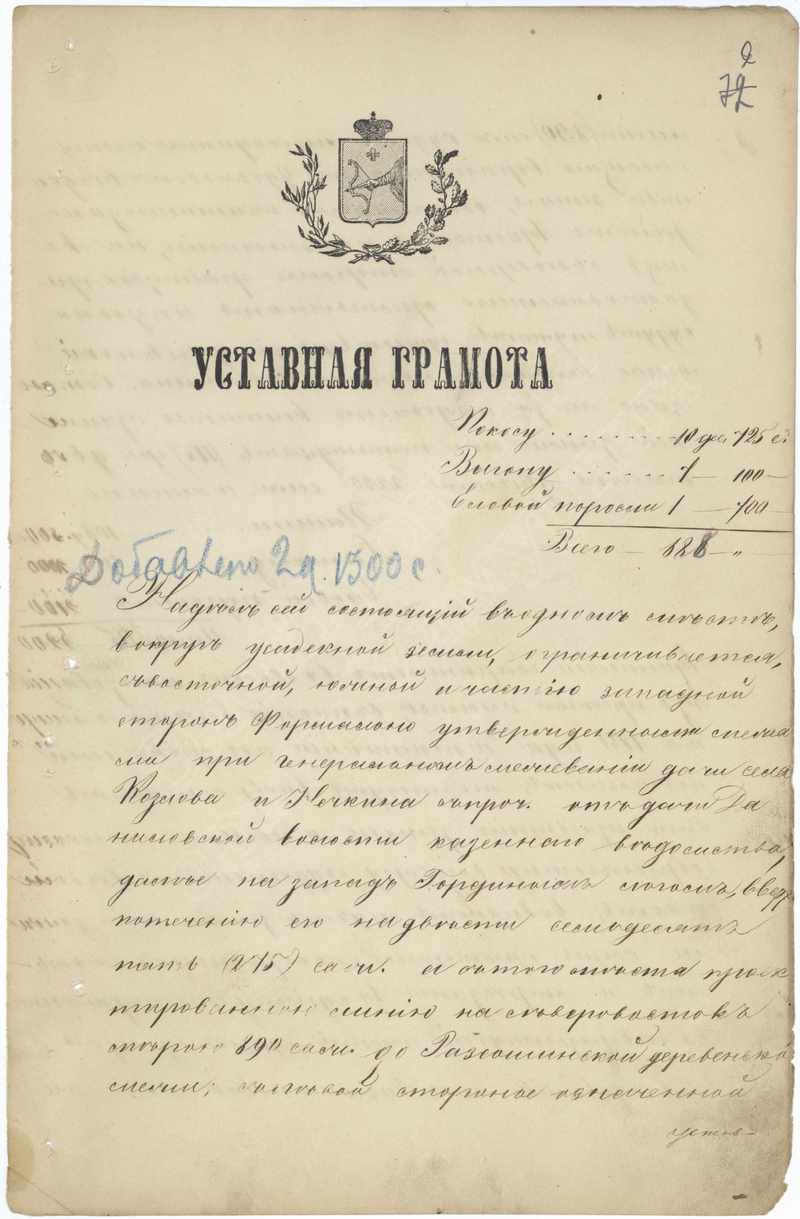 2
72
УСТАВНАЯ ГРАМОТА
Покосу . . . . . . . 10 дес. 125 с.
Выгону . . . . . . 1 — 100 —
Еловой поросли 1 — 700 —
Всего — 128 — „
Добавлено 2 д. 1300 с.
Надѣлъ сей состоящій въ одномъ мѣстѣ,
вокругъ усадебной земли, ограничивается,
съ восточной, южной и частію западной
сторонъ Формально утвержденными межа
ми при Генеральномъ межеваніи дачи села
Козлова и Нечкина съ проч. отъ дачи Да
ниловской волости казеннаго вѣдомства,
далѣе на западъ Гординымъ логомъ, вверх
по теченію его на двѣсти семьдесятъ
пять (275) саж. а съ того мѣста проэк
тированною линіею на сѣверовостокъ
мѣрою 890 саж. до деревенской
межи; съ лѣвой стороны означенной